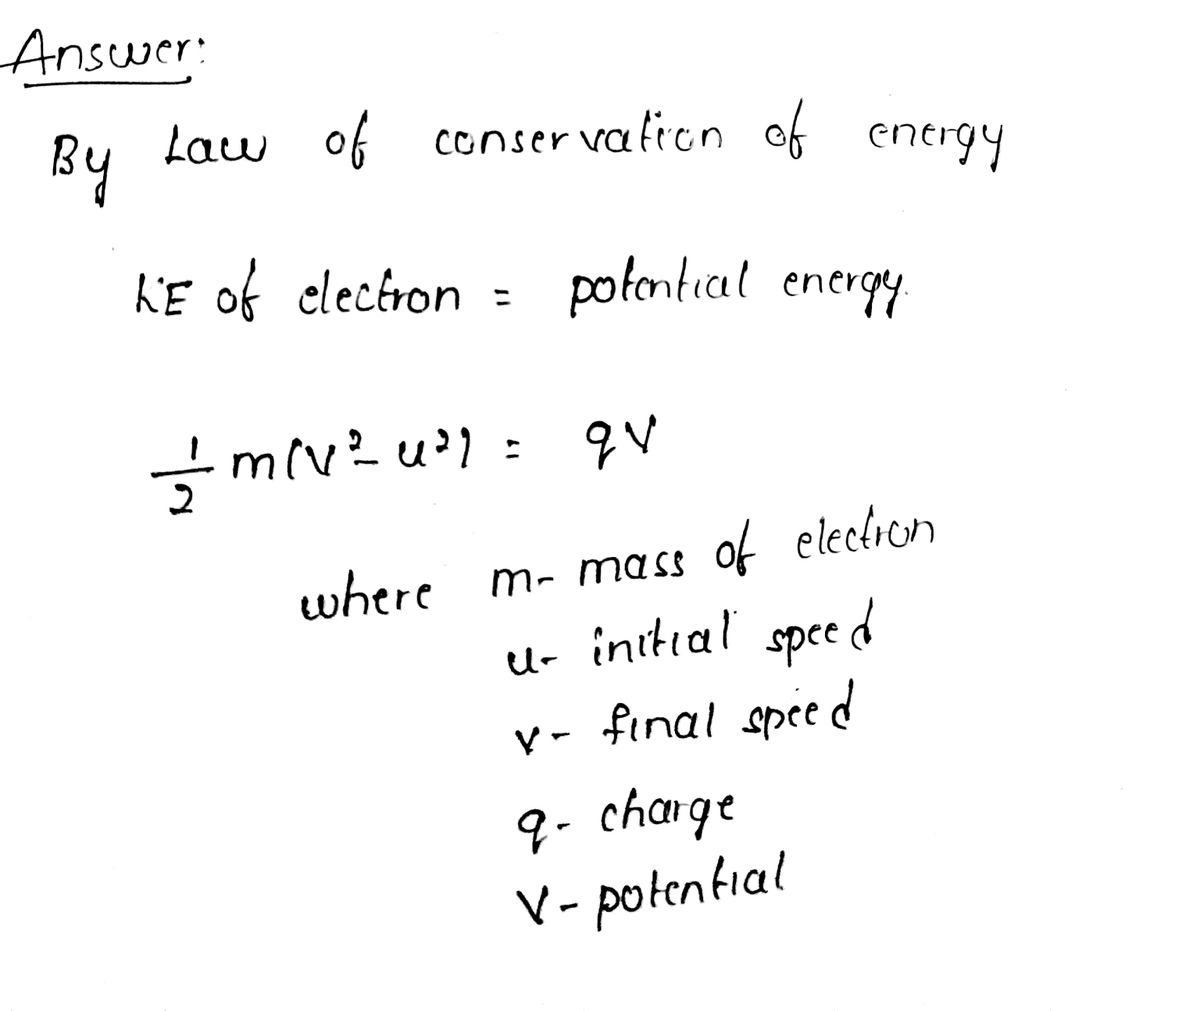 Answer:
By Law of conservation of energy
KE of electron = potential energy.
1/2 m(v² - u²) = qV
where m- mass of electron
u- initial speed
v- final speed
q- charge
V- potential